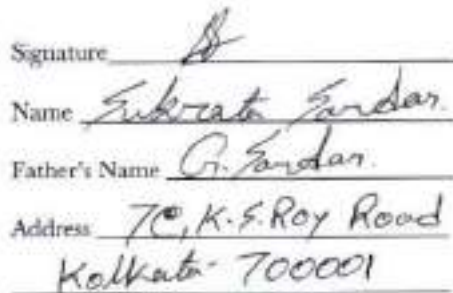 Signature
Name Sukrata Sardar.
Father's Name G. Sardar.
Address 7C, K.S. Roy Road
Kolkata- 700001